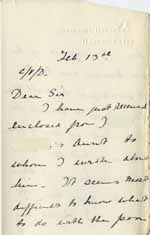 Feb. 13th
Dear Sir
I have just received
enclosed from J
is Aunt to
whom I wrote about
him. It seems most
difficult to know what
to do with the poor